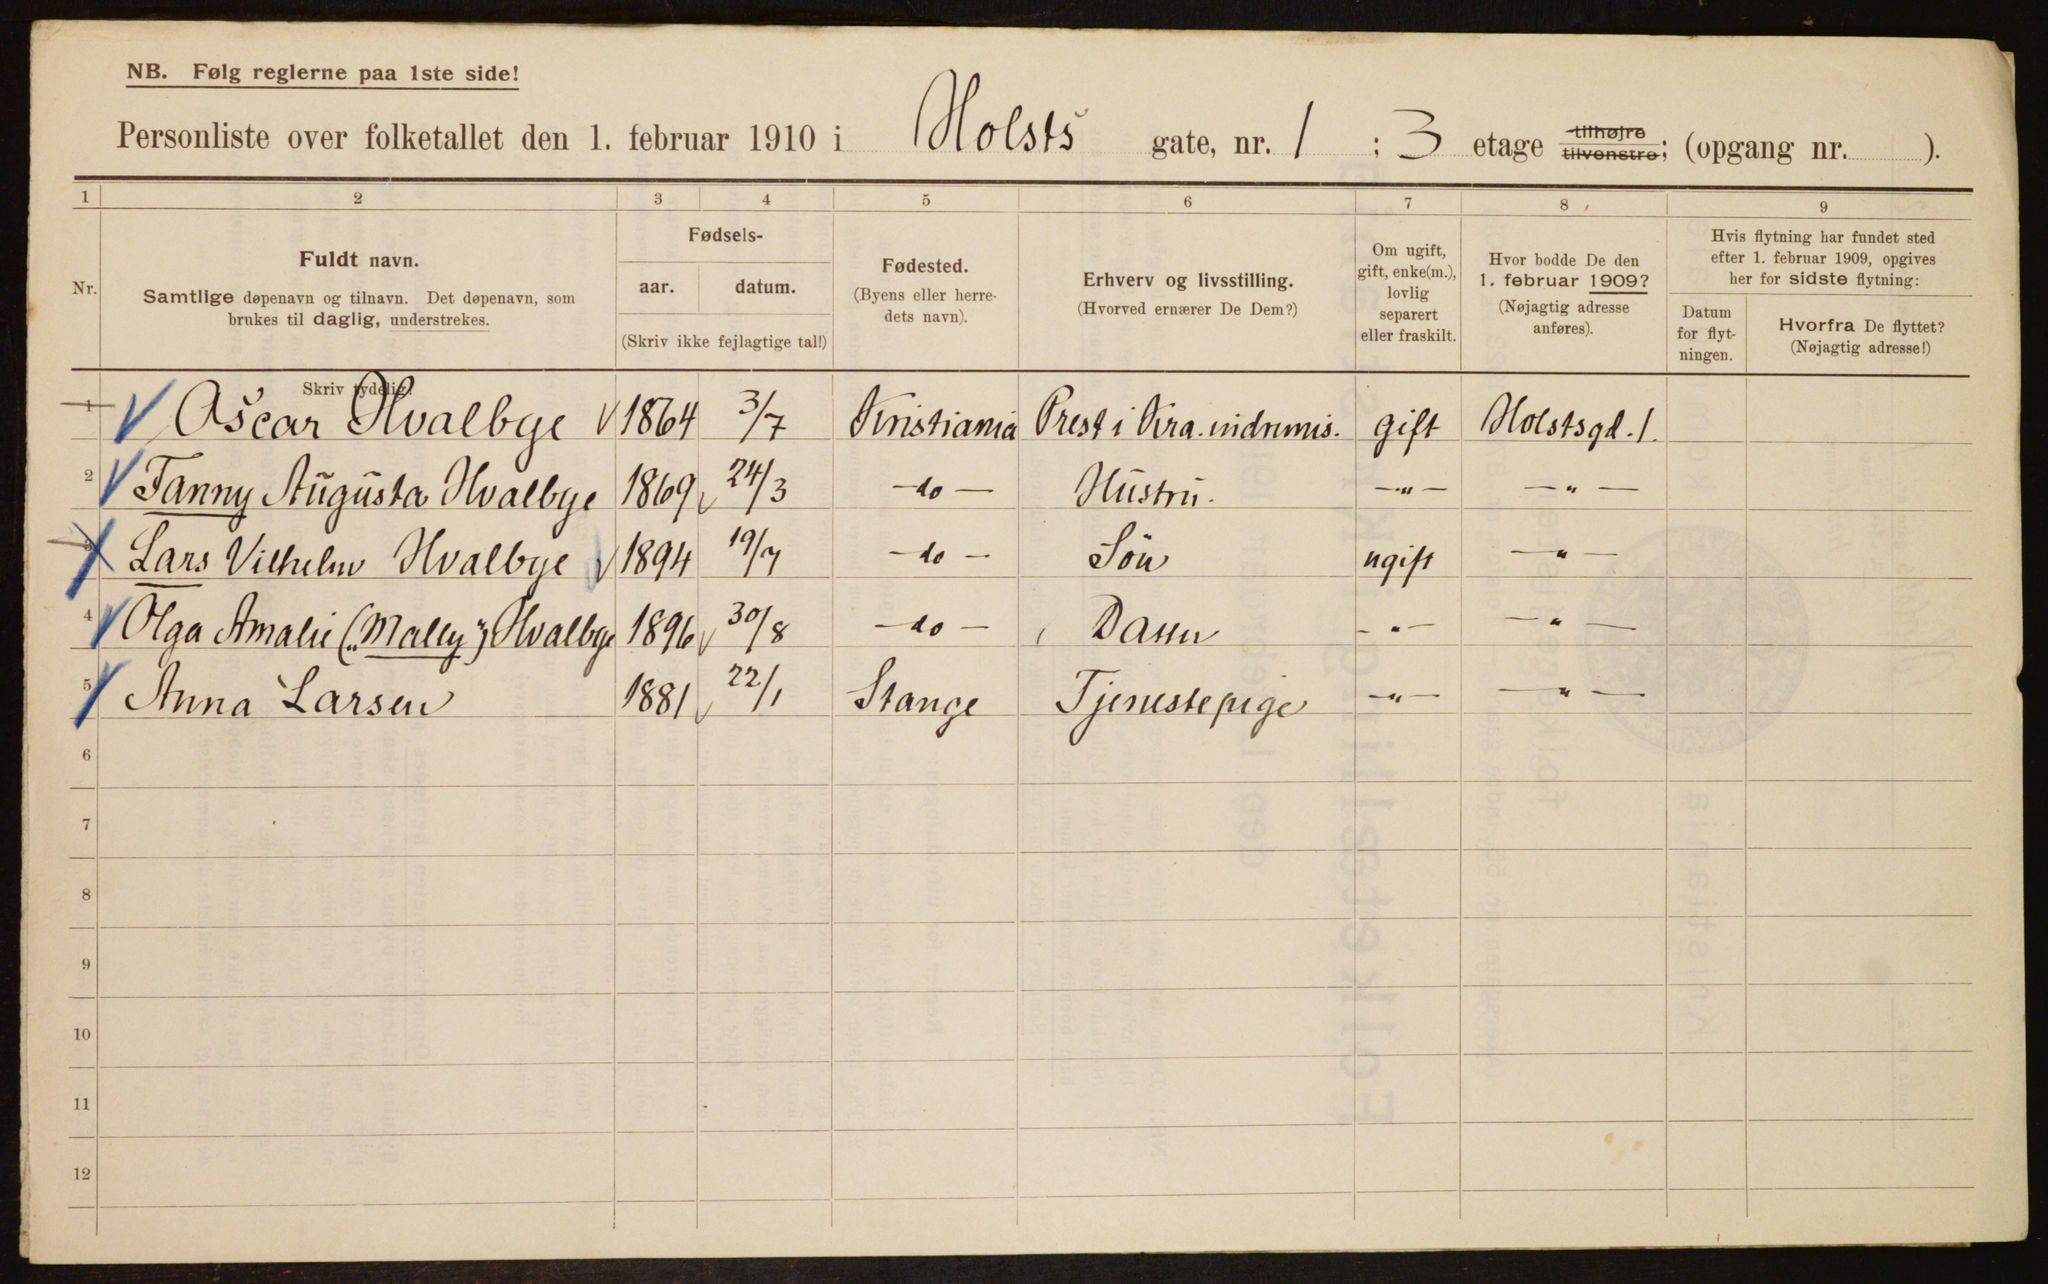 NB. Følg reglerne paa 1ste side!
Personliste over folketallet den 1. februar 1910 i Holsts gate, nr. 1 ; 3 etage tilhøjre tilvenstre; (opgang nr. ).
1 2 3 4 5 6 7 8 9
Nr.
Fuldt navn.
Samtlige døpenavn og tilnavn. Det døpenavn, som
brukes til daglig, understrekes.
Skriv tydelig!
Fødsels-
aar. datum.
(Skriv ikke fejlagtige tal!)
Fødested.
(Byens eller herre-
dets navn).
Erhverv og livsstilling.
(Hvorved ernærer De Dem?)
Om ugift,
gift, enke(m.),
lovlig
separert
eller fraskilt.
Hvor bodde De den
1. februar 1909?
(Nøjagtig adresse
anføres).
Hvis flytning har fundet sted
efter 1. februar 1909, opgives
her for sidste flytning:
Datum
for flyt-
ningen.
Hvorfra De flyttet?
(Nøjagtig adresse!)
1 Oscar Hvalbye 1864 3/7 Kristiania Prest i Kra. indrmis. gift Holstsgd. 1.
2 Fanny Augusta Hvalbye 1869 24/3 —do— Hustru. —"— —"—
3 Lars Vilhelm Hvalbye 1894 19/7 —do— Søn ugift —"—
4 Olga Amalie („Mally") Hvalbye 1896 30/8 —do— Datter —"— —"—
5 Anna Larsen 1881 22/1 Stange Tjenestepige —"— —"—
6
7
8
9
10
11
12